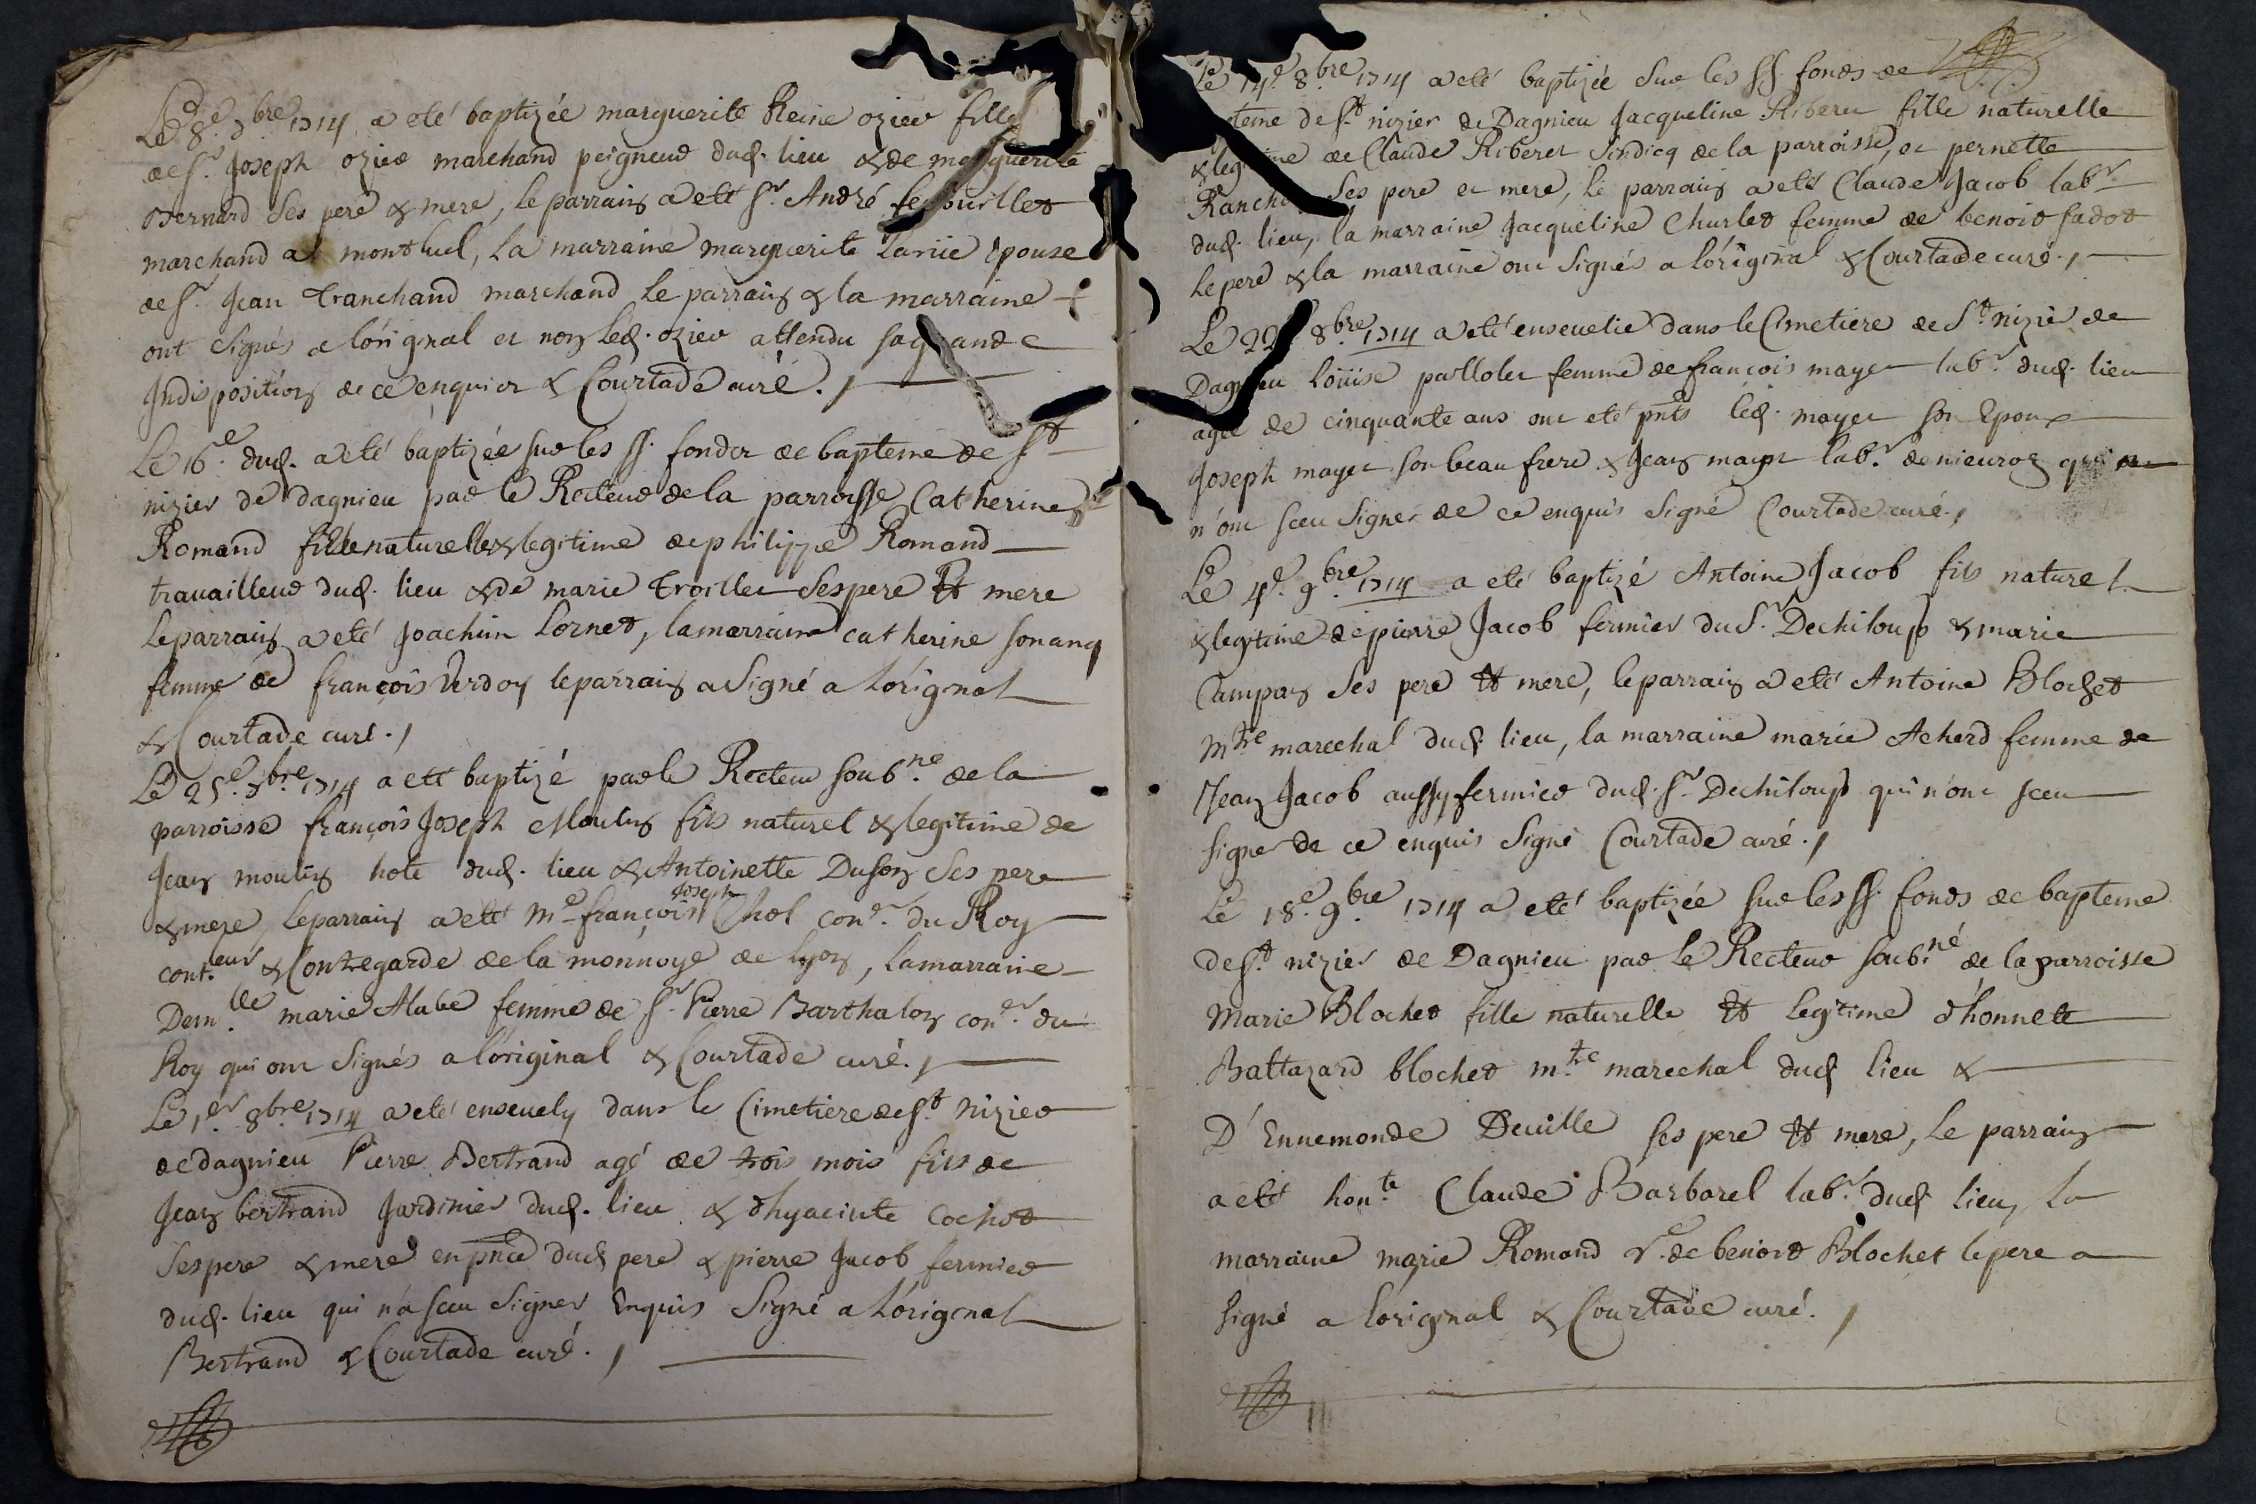 Le 8.e 7.bre 1714 a eté baptizée marguerite Reine ozier fille
de s.r Joseph ozier marchand peigneur dud. lieu & de marguerite
Bernard ses pere & mere, le parrain a eté s.r André
marchand a montluel, la marraine marguerite Larüe epouse
de s.r Jean Tranchand marchand le parrain & la marraine
ont signés a lórignal et non led. ozier attendu sa grande
Indisposition de ce enquier & Courtade curé.
Le 16.e dud. a eté baptizée sur les ss. fonder de bapteme de s.t
nizier de dagnieu par le Recteur de la parroisse Catherine
Romand fille naturelle & legitime de philippe Romand
travailleur dud. lieu & de marie Troillet ses pere et mere
le parrain a eté Joachim Lornet, la marraine catherine
femme de françois Verdoy le parrain a signé a lórignal
& Courtade curé.
Le 25.e 7.bre 1714 a eté baptizé par le Recteur soub.ne de la
parroisse françois Joseph Moulin fils naturel & legitime de
Jean moulin hote dud. lieu & Antoinette Duson ses pere
& mere, le parrain a eté m.e françois Joseph Chol con.er du Roy
cont.eur & Contregarde de la monnoye de lyon, la marraine
Dem.lle marie Alabe femme de s.r Pierre Barthalon con.er du
Roy qui ont signés a lóriginal & Courtade curé.
Le 1.er 8.bre 1714 a eté ensevely dans le Cimetiere de s.t Nizier
de dagnieu Pierre Bertrand agé de trois mois fils de
Jean bertrand Jardinier dud. lieu & d'hyacinte Cochet
ses pere & mere en pnce dud. pere & pierre Jacob fermier
dud. lieu qui n'a sceu signer Enquis signé a lórigenal
Bertrand & Courtade curé.
Le 14.e 8.bre 1714 a eté baptizée sur les ss. fonds de
teme de s.t nizier de Dagnieu Jacqueline Riberet fille naturelle
& leg ime de Claude Riberet sindicq de la parroisse, et pernette
Ranch ses pere et mere, le parrain a eté Claude Jacob lab.r
dud. lieu, la marraine Jacqueline Churlet femme de benoit fadot
le pere & la marraine ont signés a lóriginal & Courtade curé.
Le 22 8.bre 1714 a eté ensevelie dans le Cimetiere de s.t nizier de
Dagnieu loüise pallolet femme de françois mayet lab.r dud. lieu
agée de cinquante ans ont eté pnts led. mayet son Epoux
Joseph mayet son beau frere & Jean mayet lab.r de nieuroz qui
n'ont sceu signer de ce enquis signé Courtade curé.
Le 4.e 9.bre 1714 a eté baptizé Antoine Jacob fils naturel
& legitime de pierre Jacob fermier du s.r Dechiloup & marie
Campan ses pere et mere, le parrain a eté Antoine Blochet
m.tre marechal dud. lieu, la marraine marie Acherd femme de
Jean Jacob aussy fermier dud. s.r Dechiloup qui n'ont sceu
signer de ce enquis signé Courtade curé.
Le 18.e 9.bre 1714 a eté baptizée sur les ss. fonds de bapteme
de s.t nizier de Dagnieu par le Recteur soub.né de la parroisse
Marie Blochet fille naturelle et legitime d'honnete
Baltazard blochet m.tre marechal dud. lieu &
D'Ennemonde Deville ses pere et mere, le parrain
a eté hon.te Claude Barbarel lab.r dud. lieu, la
marraine marie Romand v.e de benoit Blochet le pere a
signé a loriginal & Courtade curé.